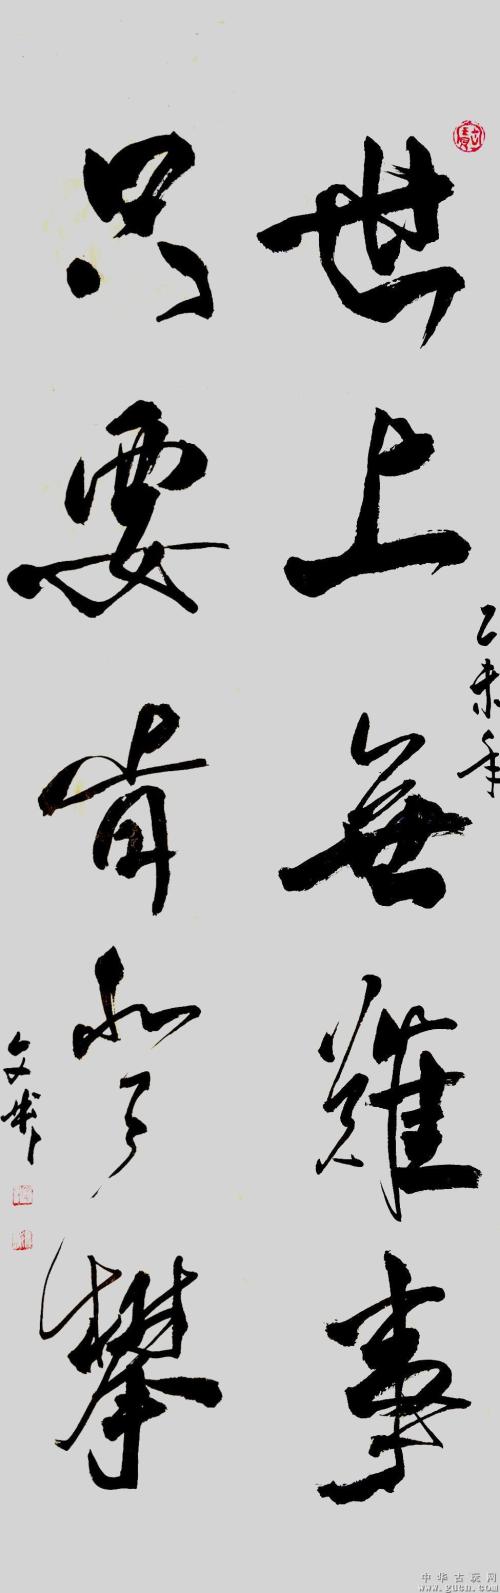 乙未年
世上無難事
只要肯登攀
文
中华古玩网
www.gucn.com